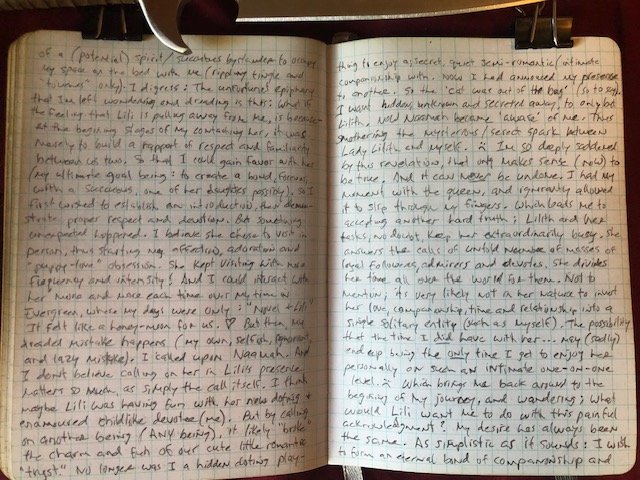 of a (potential) spirit/succubus bystander to occupy
my space on the bed with me (rippling tingle and
"touches" only). I digress: The unfortunate epiphany
that I'm left wondering and dreading is this: What if
the feeling that Lili is pulling away from me, is because
at the beginning stages of my contacting her, it was
merely to build a rapport of respect and familiarity
between us two. So that I could gain favor with her
(my ultimate goal being: to create a bond, forever,
with a Succubus, one of her daughters possibly), so I
first wished to establish an introduction, then demon-
strate proper respect and devotion. But something
unexpected happened. I believe she chose to visit in
person, thus starting my affection, adoration and
"puppy-love" obsession. She kept visiting with more
frequency and intensity! And I could interact with
her more and more each time over my time in
Evergreen, where my days were only: "Novel & Lili"
It felt like a honey-moon for us. ♡ But then, my
dreaded mistake happens (my own, selfish, ignorant,
and lazy mistake). I called upon Naamah. And
I don't believe calling on her in Lili's presence
matters so much as simply the call itself. I think
maybe Lili was having fun with her new doting &
enamoured childlike devotee (me). But by calling
on another being (ANY being), it likely "broke"
the charm and fun of our cute little romantic
"tryst." No longer was I a hidden doting play-
thing to enjoy a secret, quiet semi-romantic/intimate
companionship with. Now I had announced my presence
to another. So the 'cat was out of the bag' (so to say).
I want hidden, unknown and secreted away, to only be
Lilith. Now Naamah became 'aware' of me. Thus
smothering the mysterious/secret spark between
Lady Lilith and myself. ☹ I'm so deeply saddened
by this revelation, that only makes sense (now) to
be true. And it can never be undone. I had my
moment with the queen, and ignorantly allowed
it to slip through my fingers. Which leads me to
accepting another hard truth; Lilith and her
tasks, no doubt, keep her extraordinarily busy. She
answers the calls of untold number of masses of
loyal followers, admirers and devotees. She divides
her time all over the world for them. Not to
mention; it's very likely not in her nature to invest
her love, companionship, time and relationship into a
single solitary entity (such as myself). The possibility
that the time I did have with her... may (sadly)
end up being the only time I get to enjoy her
personally on such an intimate one-on-one
level. ☹ Which brings me back around to the
beginning of my journey, and wondering; What
would Lili want me to do with this painful
acknowledgment? My desire has always been
the same. As simplistic as it sounds: I wish
to form an eternal bond of companionship and